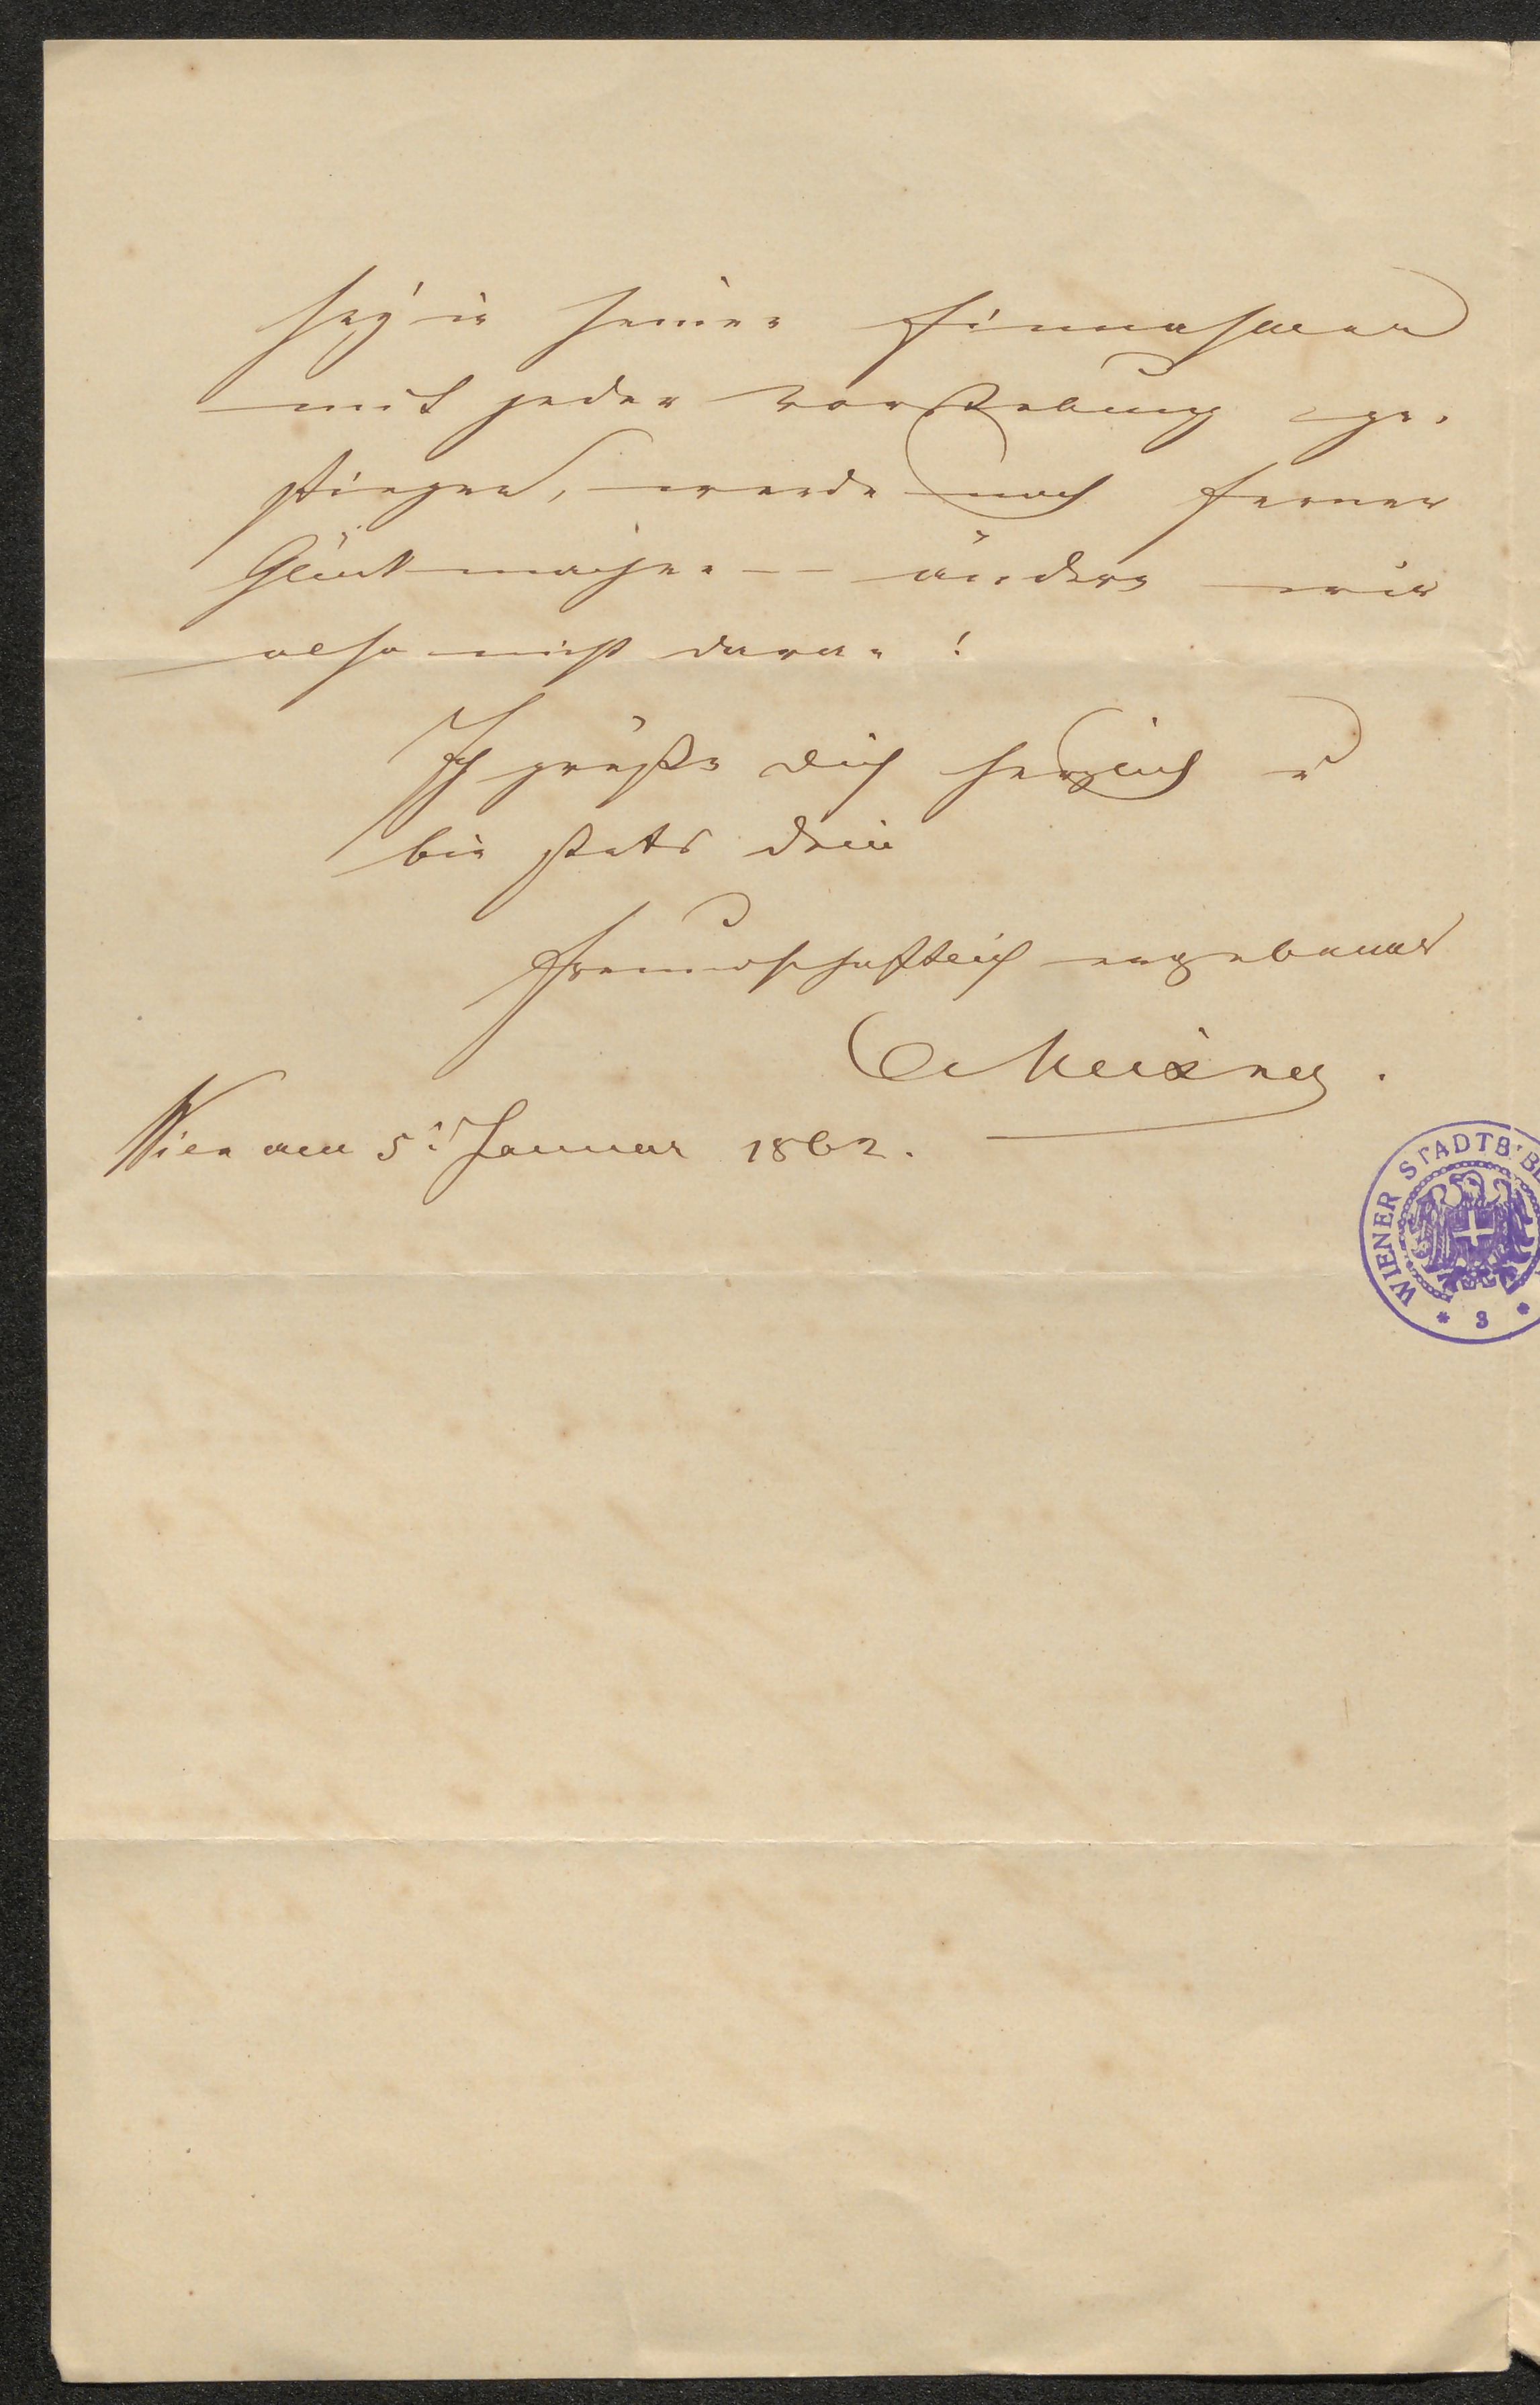 sey in seinen Einnahmen
mit jeder Vorstellung ge-
stiegen, werde noch ferner
Glück machen — ändern wir
also nichts daran!
Ich grüße dich herzlich u
bin stets dein
freundschaftlich ergebener
CMeixner.
Wien am 5t Januar 1862.
WIENER STADTBIB
* 3 *